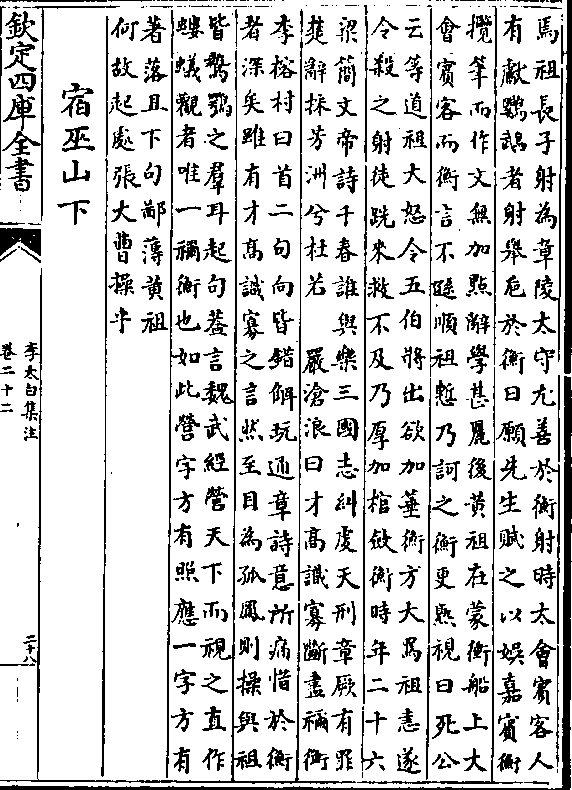 馬祖長子射為章陵太守尤善於衡射時大會賓客人
有獻鸚鵡者射舉卮於衡曰願先生賦之以娯嘉賓衡
攬筆而作文無加點辭學甚麗後黄祖在蒙衝船上大
會賓客而衡言不遜順祖慙乃訶之衡更熟視曰死公
云等道祖大怒令五伯將出欲加箠衡方大罵祖恚遂
令殺之射徒跣來救不及乃厚加棺斂衡時年二十六
梁簡文帝詩千春誰與樂三國志糾虔天刑章厥有罪
楚辭採芳洲兮杜若　嚴滄浪曰才高識寡斷盡禰衡
李榕村曰首二句向皆錯解玩通章詩意所痛惜於衡
者深矣雖有才高識寡之言然至目為孤鳳則操與祖
皆鷙鶚之羣耳起句葢言魏武經營天下而視之直作
螻蟻觀者唯一禰衡也如此營字方有照應一字方有
著落且下句鄙薄黄祖
何故起處張大曹操乎
宿巫山下
欽定四庫全書
李太白集注
卷二十二
二十八